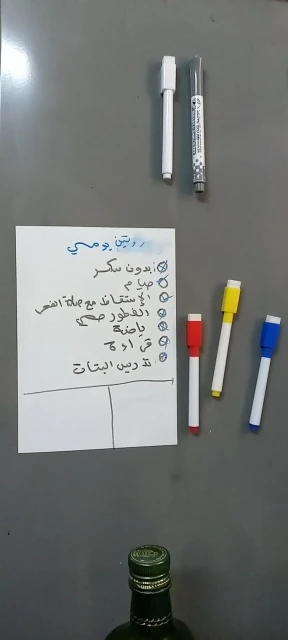 روتين يومي
بدون سكر
صيام
الإستقاظ مع صلاة الفجر
الفطور صحي
رياضة
قراءة
تدريس البنات